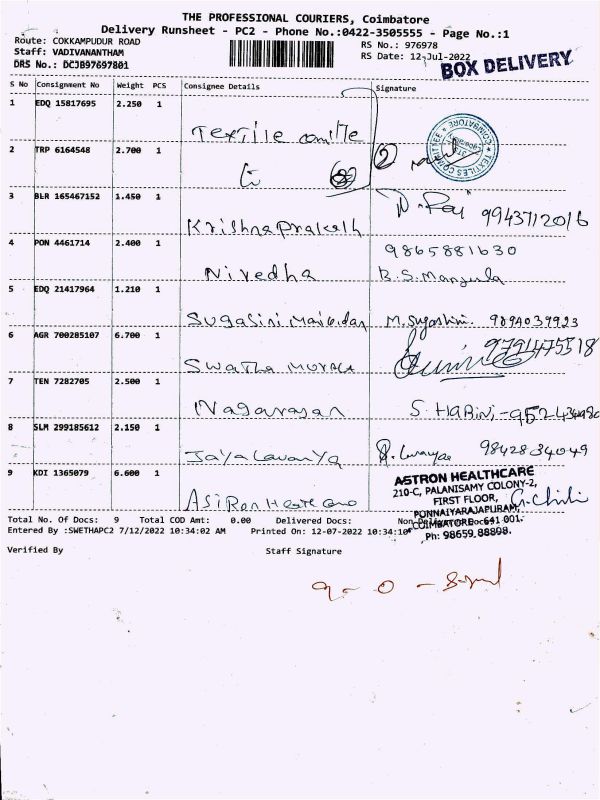 THE PROFESSIONAL COURIERS, Coimbatore
Delivery Runsheet - PC2 - Phone No.:0422-3505555 - Page No.:1
Route: COKKAMPUDUR ROAD
RS No.: 976978
Staff: VADIVANANTHAM
RS Date: 12-Jul-2022
DRS No.: DCJB97697801
BOX DELIVERY
S No Consignment No Weight PCS Consignee Details Signature
1 EDQ 15817695 2.250 1 Textile
TEXTILES COMMITTEE
COIMBATORE
2 TRP 6164548 2.700 1
2
3 BLR 165467152 1.450 1 Krishna Prakash 9943712016
4 PON 4461714 2.400 1 Nivedha 9865881630
B.S. Manjula
5 EDQ 21417964 1.210 1 Sugasini M. Sugashini. 9094039923
6 AGR 700285107 6.700 1 Swatha 9791475518
7 TEN 7282705 2.500 1 Nagarajan S. HARINI
8 SLM 299185612 2.150 1 Jaya Lavanya 9842834049
9 KDI 1365079 6.600 1
ASTRON HEALTHCARE
210-C, PALANISAMY COLONY-2,
FIRST FLOOR,
PONNAIYARAJAPURAM,
COIMBATORE - 641 001.
Ph: 98659 88898.
Total No. Of Docs: 9 Total COD Amt: 0.00 Delivered Docs:
Entered By :SWETHAPC2 7/12/2022 10:34:02 AM Printed On: 12-07-2022 10:34:10
Verified By Staff Signature
9 - 0 -